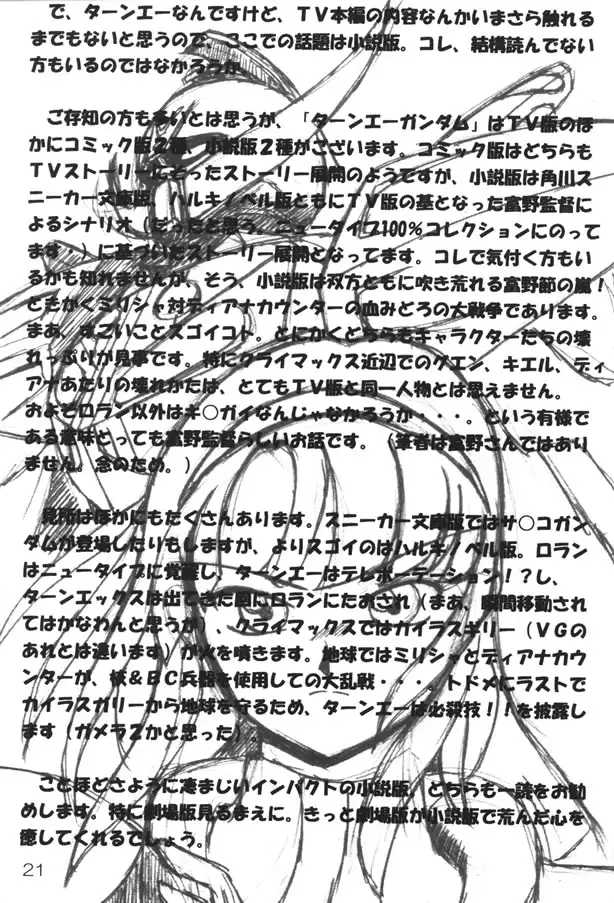 で、ターンエーなんですけど、ＴＶ本編の内容なんかいまさら触れる
までもないと思うので、ここでの話題は小説版。コレ、結構読んでない
方もいるのではなかろうか。
ご存知の方も多いとは思うが、「ターンエーガンダム」はＴＶ版のほ
かにコミック版２種、小説版２種がございます。コミック版はどちらも
ＴＶストーリーにそったストーリー展開のようですが、小説版は角川ス
ニーカー文庫版、ハルキノベル版ともにＴＶ版の基となった富野監督に
よるシナリオ（だったと思う。ニュータイプ100％コレクションにのって
ます　）に基づいたストーリー展開となってます。コレで気付く方もい
るかも知れませんが、そう、小説版は双方ともに吹き荒れる富野節の嵐！
ときかくミリシャ対ディアナカウンターの血みどろの大戦争であります。
まあ、すごいことスゴイコト。とにかくどちらもキャラクターたちの壊
れっぷりが見事です。特にクライマックス近辺でのグエン、キエル、ディ
アナあたりの壊れかたは、とてもＴＶ版と同一人物とは思えません。
およそロラン以外はキ○ガイなんじゃなかろうか・・・。という有様で
ある意味とっても富野監督らしいお話です。（筆者は富野さんではあり
ません。念のため。）
見所はほかにもたくさんあります。スニーカー文庫版ではサ○コガン
ダムが登場したりもしますが、よりスゴイのはハルキノベル版。ロラン
はニュータイプに覚醒し、ターンエーはテレポーテーション！？し、
ターンエックスは出てきた回にロランにたおされ（まあ、瞬間移動され
てはかなわんと思うが）、クライマックスではカイラスギリー（ＶＧの
あれとは違います）が火を噴きます。地球ではミリシャとディアナカウ
ンターが、核＆ＢＣ兵器を使用しての大乱戦・・・。トドメにラストで
カイラスガリーから地球を守るため、ターンエーは必殺技！！を披露し
ます（ガメラ２かと思った）。
ことほどさように凄まじいインパクトの小説版、どちらも一読をお勧
めします。特に劇場版見るまえに。きっと劇場版が小説版で荒んだ心を
癒してくれるでしょう。
21